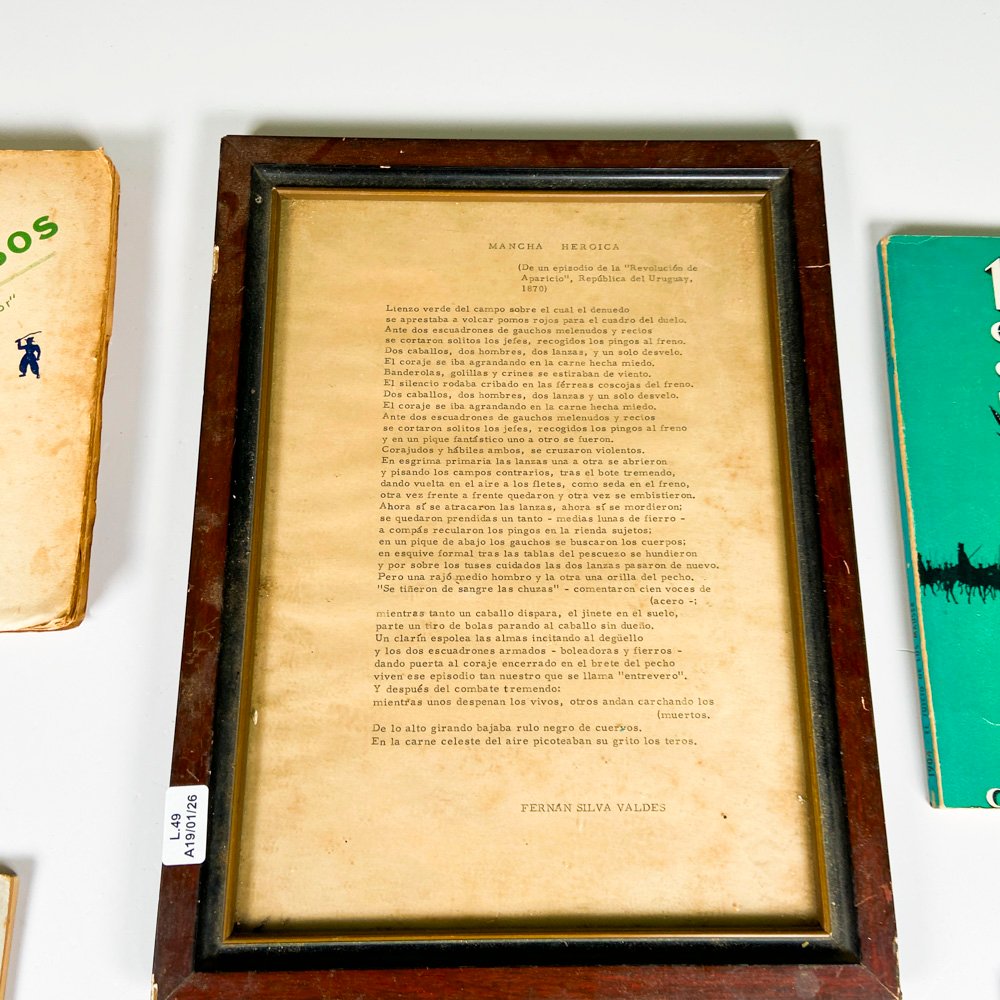 MANCHA HEROICA
(De un episodio de la "Revolución de
Aparicio", República del Uruguay,
1870)
Lienzo verde del campo sobre el cual el denuedo
se aprestaba a volcar pomos rojos para el cuadro del duelo.
Ante dos escuadrones de gauchos melenudos y recios
se cortaron solitos los jefes, recogidos los pingos al freno.
Dos caballos, dos hombres, dos lanzas, y un solo desvelo.
El coraje se iba agrandando en la carne hecha miedo.
Banderolas, golillas y crines se estiraban de viento.
El silencio rodaba cribado en las férreas coscojas del freno.
Dos caballos, dos hombres, dos lanzas y un solo desvelo.
El coraje se iba agrandando en la carne hecha miedo.
Ante dos escuadrones de gauchos melenudos y recios
se cortaron solitos los jefes, recogidos los pingos al freno
y en un pique fantástico uno a otro se fueron.
Corajudos y hábiles ambos, se cruzaron violentos.
En esgrima primaria las lanzas una a otra se abrieron
y pisando los campos contrarios, tras el bote tremendo,
dando vuelta en el aire a los fletes, como seda en el freno,
otra vez frente a frente quedaron y otra vez se embistieron.
Ahora sí se atracaron las lanzas, ahora sí se mordieron;
se quedaron prendidas un tanto - medias lunas de fierro -
a compás recularon los pingos en la rienda sujetos;
en un pique de abajo los gauchos se buscaron los cuerpos;
en esquive formal tras las tablas del pescuezo se hundieron
y por sobre los tuses cuidados las dos lanzas pasaron de nuevo.
Pero una rajó medio hombro y la otra una orilla del pecho.
"Se tiñeron de sangre las chuzas" - comentaron cien voces de
(acero -;
mientras tanto un caballo dispara, el jinete en el suelo,
parte un tiro de bolas parando al caballo sin dueño.
Un clarín espolea las almas incitando al degüello
y los dos escuadrones armados - boleadoras y fierros -
dando puerta al coraje encerrado en el brete del pecho
viven ese episodio tan nuestro que se llama "entrevero".
Y después del combate tremendo:
mientras unos despenan los vivos, otros andan carchando los
(muertos.
De lo alto girando bajaba rulo negro de cuervos.
En la carne celeste del aire picoteaban su grito los teros.
FERNÁN SILVA VALDES
L.49
A19/01/26